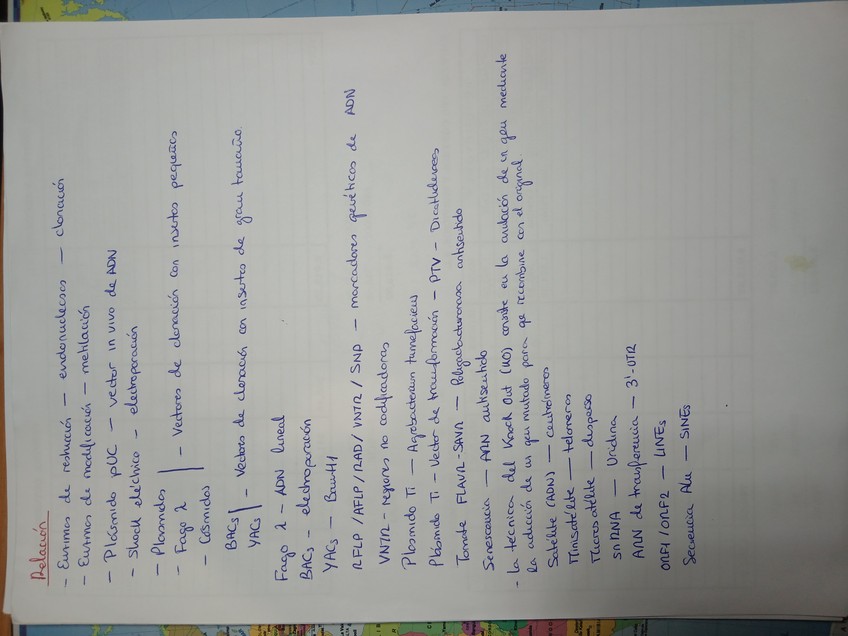 Relación
- Enzimas de restricción — endonucleasas — clonación
- Enzimas de modificación — metilación
- Plásmido pUC — vector in vivo de ADN
- Shock eléctrico - electroporación
- Plásmidos
- Fago λ - Vectores de clonación con insertos pequeños
- Cósmidos
BACs
YACs - Vectores de clonación con insertos de gran tamaño.
Fago λ - ADN lineal
BACs - electroporación
YACs - BamH1
RFLP / AFLP / RAD / VNTR / SNP — marcadores genéticos de ADN
VNTR - regiones no codificadoras
Plásmido Ti — Agrobacterium tumefaciens
Plásmido Ti - Vector de transformación - PTV - Dicotiledóneas
Tomate FLAVR-SAVR — Poligalacturonasa antisentido
Senescencia — ARN antisentido
- La técnica del Knock Out (KO) consiste en la anulación de un gen mediante
la adición de un gen mutado para que recombine con el original.
Satélite (ADN) — centrómeros
Minisatélite — telómeros
Microsatélite — disperso
snRNA — Uridina
ARN de transferencia — 3'-UTR
ORF1 / ORF2 — LINEs
Secuencia Alu — SINEs